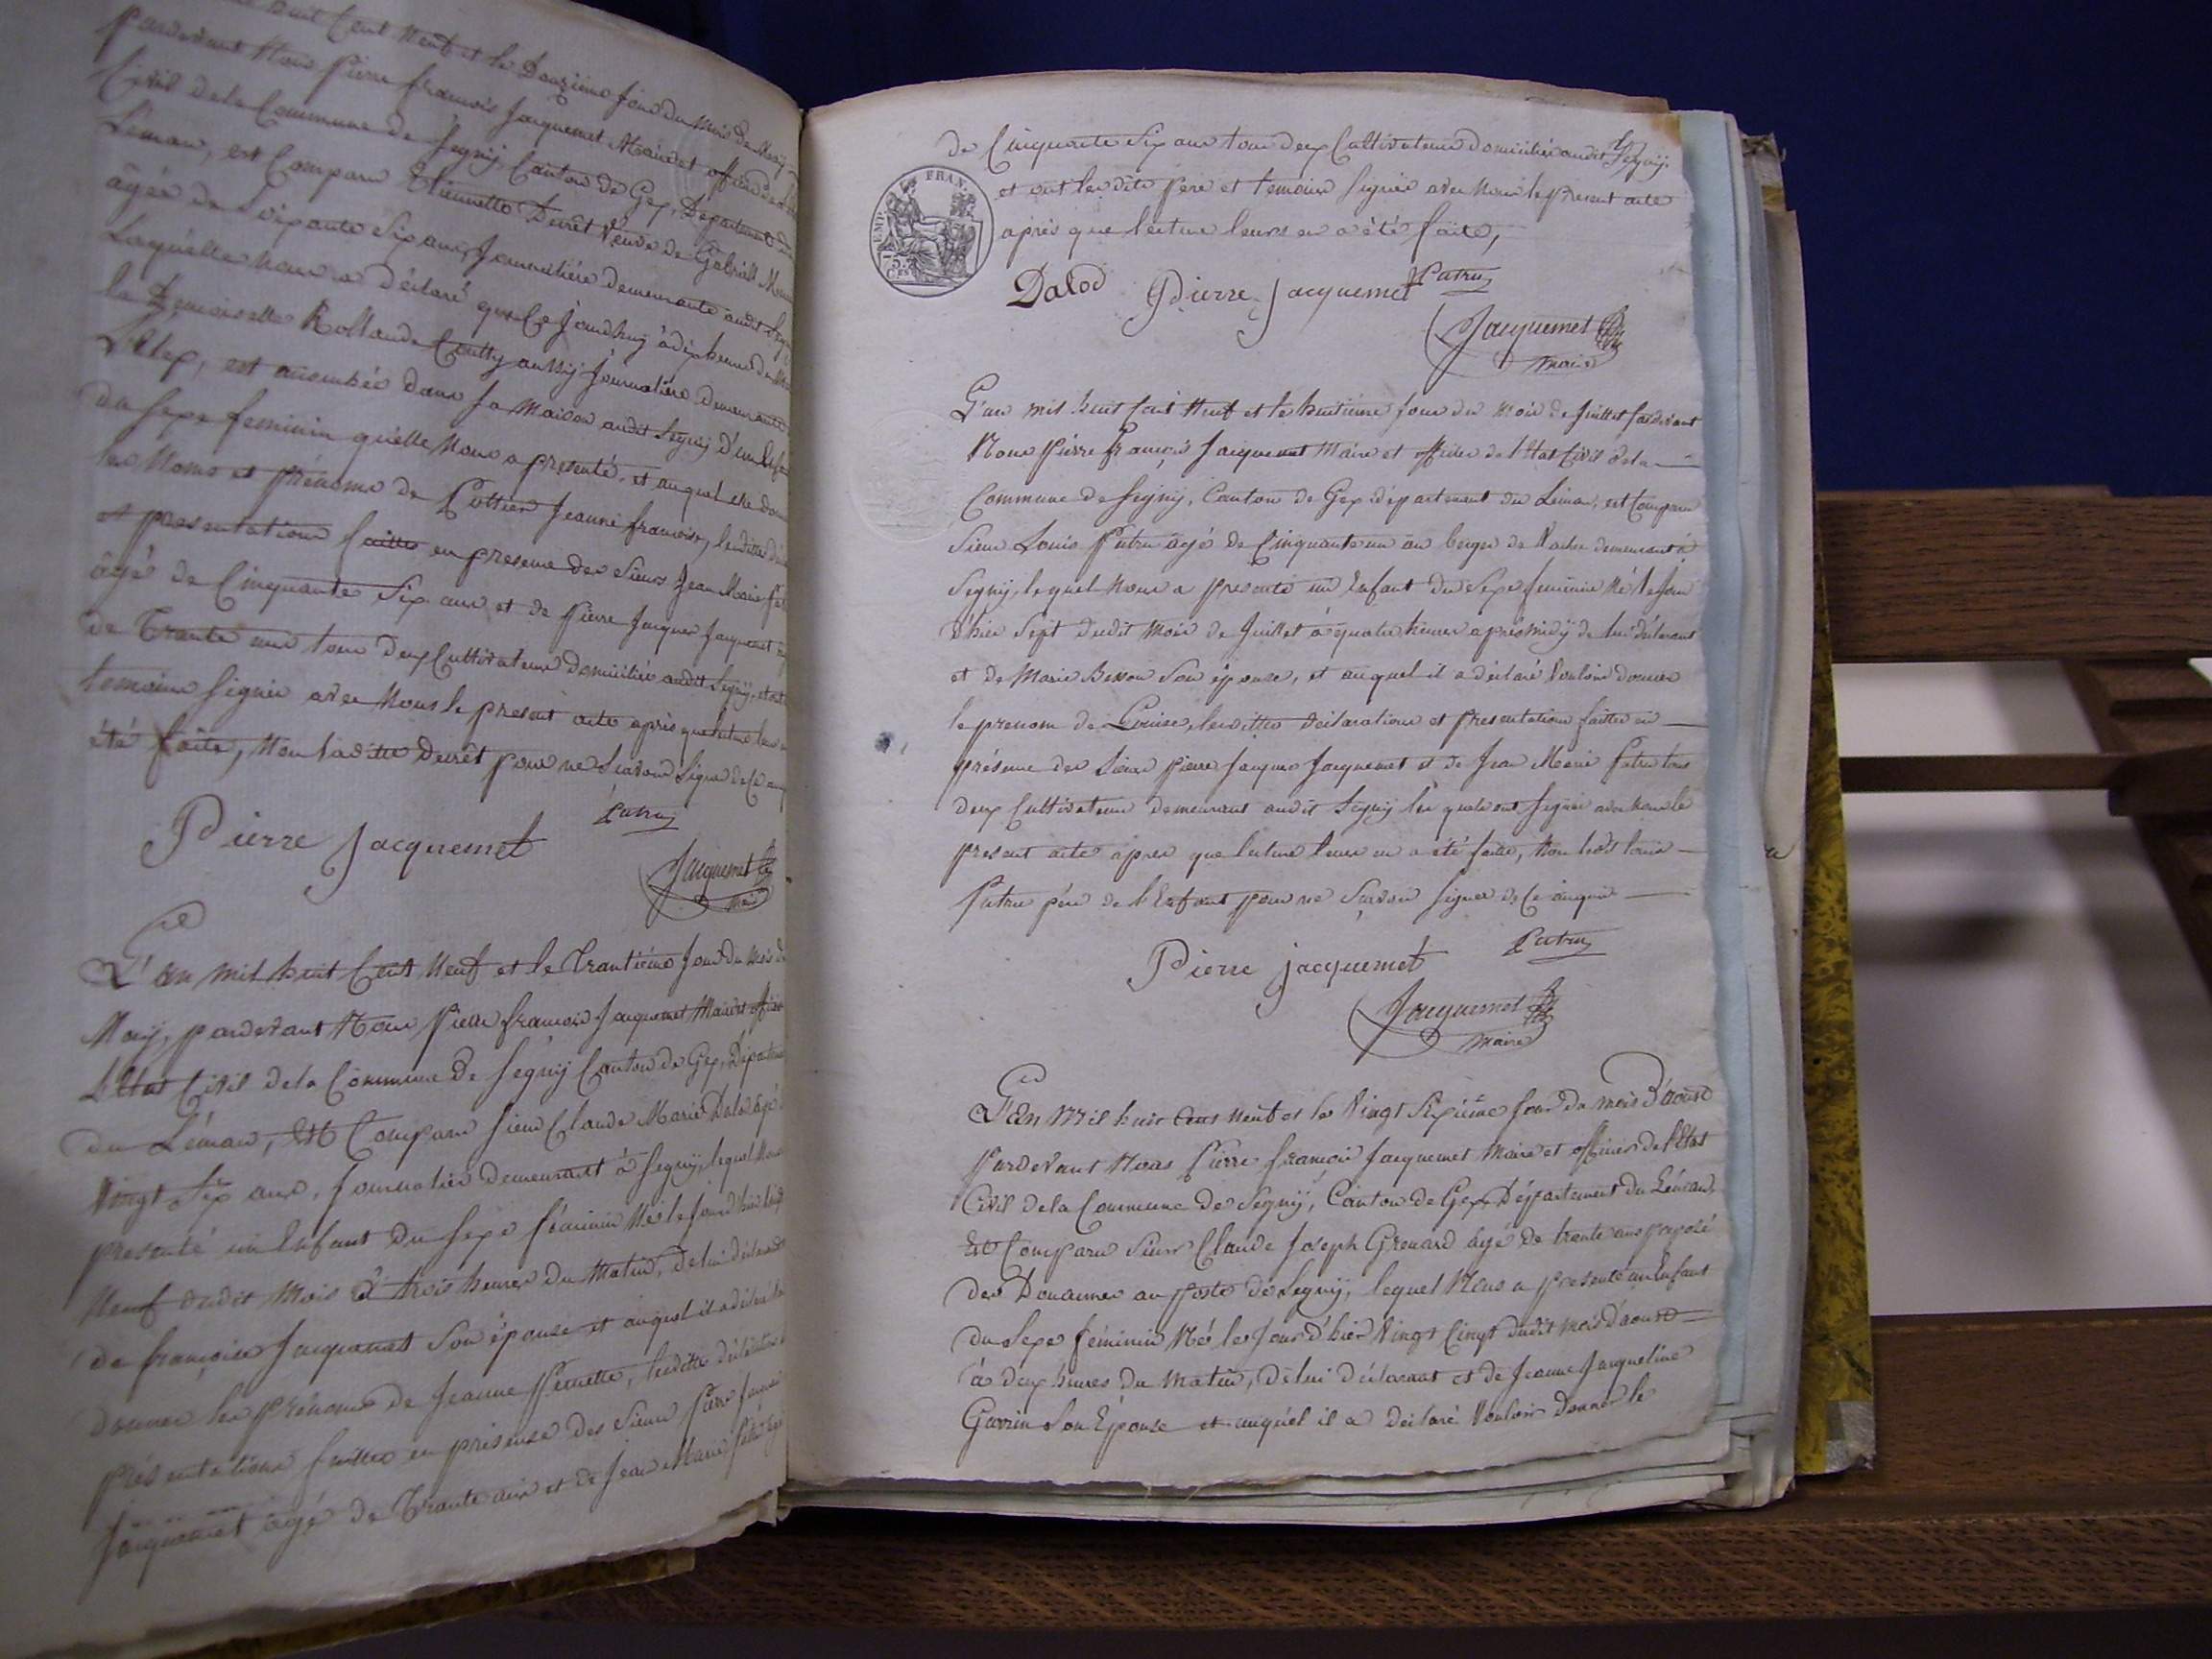 huit Cent Neuf et le Douzième jour du mois de May
pardevant Nous Pierre francois Jacquemet Maire et officier de l'état
Civil de la Commune de Segnÿ, Canton de Gex, Département du
Leman, est Comparu Etiennette Duret Veuve de Gabriël
âgée de Soixante Six ans, Journaliére demeurante audit Segny
Laquelle nous a déclaré que Ce Jourdhuy à dix heures du
la Demoiselle Rollande Coutty aussÿ Journalière demeurante
est accouchée dans sa maison audit Segny d'un Enfant
du Sexe feminin qu'elle Nous a presenté, et auquel elle donne
les Noms et prénoms de Pottier Jeanne françoise, lesdittes
et presentations faittes en presence des Sieurs Jean Marie
âgé de Cinquante Six ans et de Pierre Jacques Jacquemet
de Trante ans tous deux Cultivateurs domiciliés audit Segnÿ, et ont
temoins Signés avec Nous le present acte après que lecture leur
été faite, Non Laditte Duret pour ne Scavoir Signer de Ce
Patru
Pierre jacquemet
Jacquemet
maire
L'an mil huit Cent Neuf et le Trantième Jour du mois de
May, pardevant Nous Pierre francois Jacquemet Maire et officier
L'Etat Civil de la Commune De Segnÿ Canton de Gex, Département
du Léman, Est Comparu Sieur Claude Marie Dalod âgé
Vingt Six ans, Journalier demeurant à Segny, lequel Nous
presenté un Enfant du Sexe féminin Né le Jour d'hier Vingt
Neuf dudit Mois à trois heures du Matin, de lui déclarant
de françoise Jacquemet Son épouse et auquel il a déclaré
donner les prénoms de Jeanne Pernette, lesdittes déclarations
présentations faittes en présence des Sieurs Pierre Jacques
Jacquemet âgé de Trante ans et de Jean Marie Patru âgé
de Cinquante Six ans tous deux Cultivateurs domiciliés audit Segnÿ.
et ont lesdits Pere et temoins Signés avec Nous le Present acte
après que lecture leurs en a été faite,
EMP. FRAN.
75.
Ces
Dalod Pierre Jacquemet Patru
Jacquemet
maire
L'an mil huit Cent Neuf et le huitième Jour du mois de Juillet pardevant
Nous Pierre François Jacquemet Maire et officier de l'Etat Civil de la
Commune de Segnÿ, Canton de Gex département du Léman, est Comparu
Sieur Louis Patru âgé de Cinquante un an berger de Vache demeurant à
Segnÿ, lequel Nous a presenté un Enfant du Sexe feminin Né le Jour
d'hier Sept dudit Mois de Juillet à quatre heures aprésmidÿ de lui déclarant
et de Marie Besson Son épouse, et auquel il a déclaré Vouloir donner
le prenom de Louise, lesdittes déclarations et presentations faittes en
présence des Sieurs Pierre Jacques Jacquemet et de Jean Marie Patru tous
deux Cultivateurs demeurant audit Segny les quels ont Signés avec Nous le
present acte après que lecture leurs en a été faite, Non led.t Louis
Patru pére de l'Enfant pour ne Scavoir Signer de Ce enquis
Patru
Pierre jacquemet
Jacquemet
maire
L'an Mil huit Cent Neuf et le Vingt Sixième Jour du mois D'aoust
Pardevant Nous Pierre François Jacquemet Maire et officier de l'Etat
Civil de la Commune de Segnÿ, Canton de Gex, Département du Léman,
Est Comparu Sieur Claude Joseph Grenard âgé de trente ans préposé
des Douannes au poste de Segnÿ, lequel Nous a presenté un Enfant
du Sexe féminin Né le Jour d'hier Vingt Cinq dudit mois D'aoust
à deux heures du matin, De lui Déclarant et de Jeanne Jacqueline
Garrin Son Epouse et auquel il a Déclaré Vouloir Donner le